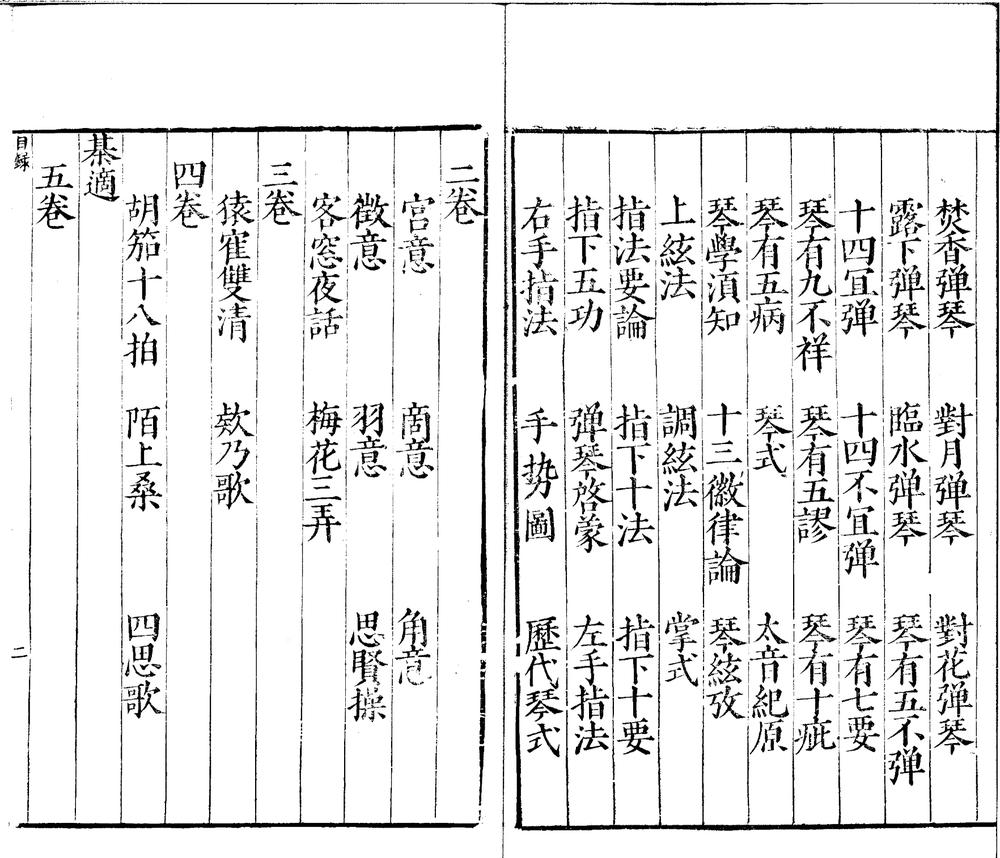 焚香弹琴　對月弹琴　對花弹琴
露下弹琴　臨水弹琴　琴有五不弹
十四冝弹　十四不冝弹　琴有七要
琴有九不祥　琴有五謬　琴有十疵
琴有五病　琴式　太音紀原
琴學湏知　十三徽律論　琴絃攷
上絃法　調絃法　掌式
指法要論　指下十法　指下十要
指下五功　弹琴啓蒙　左手指法
右手指法　手勢圖　歷代琴式
二卷
宫意　商意　角意
徵意　羽意　思賢操
客窓夜話　梅花三弄
三卷
猿寉雙清　欸乃歌
四卷
胡笳十八拍　陌上桑　四思歌
棊適
五卷
目録　二